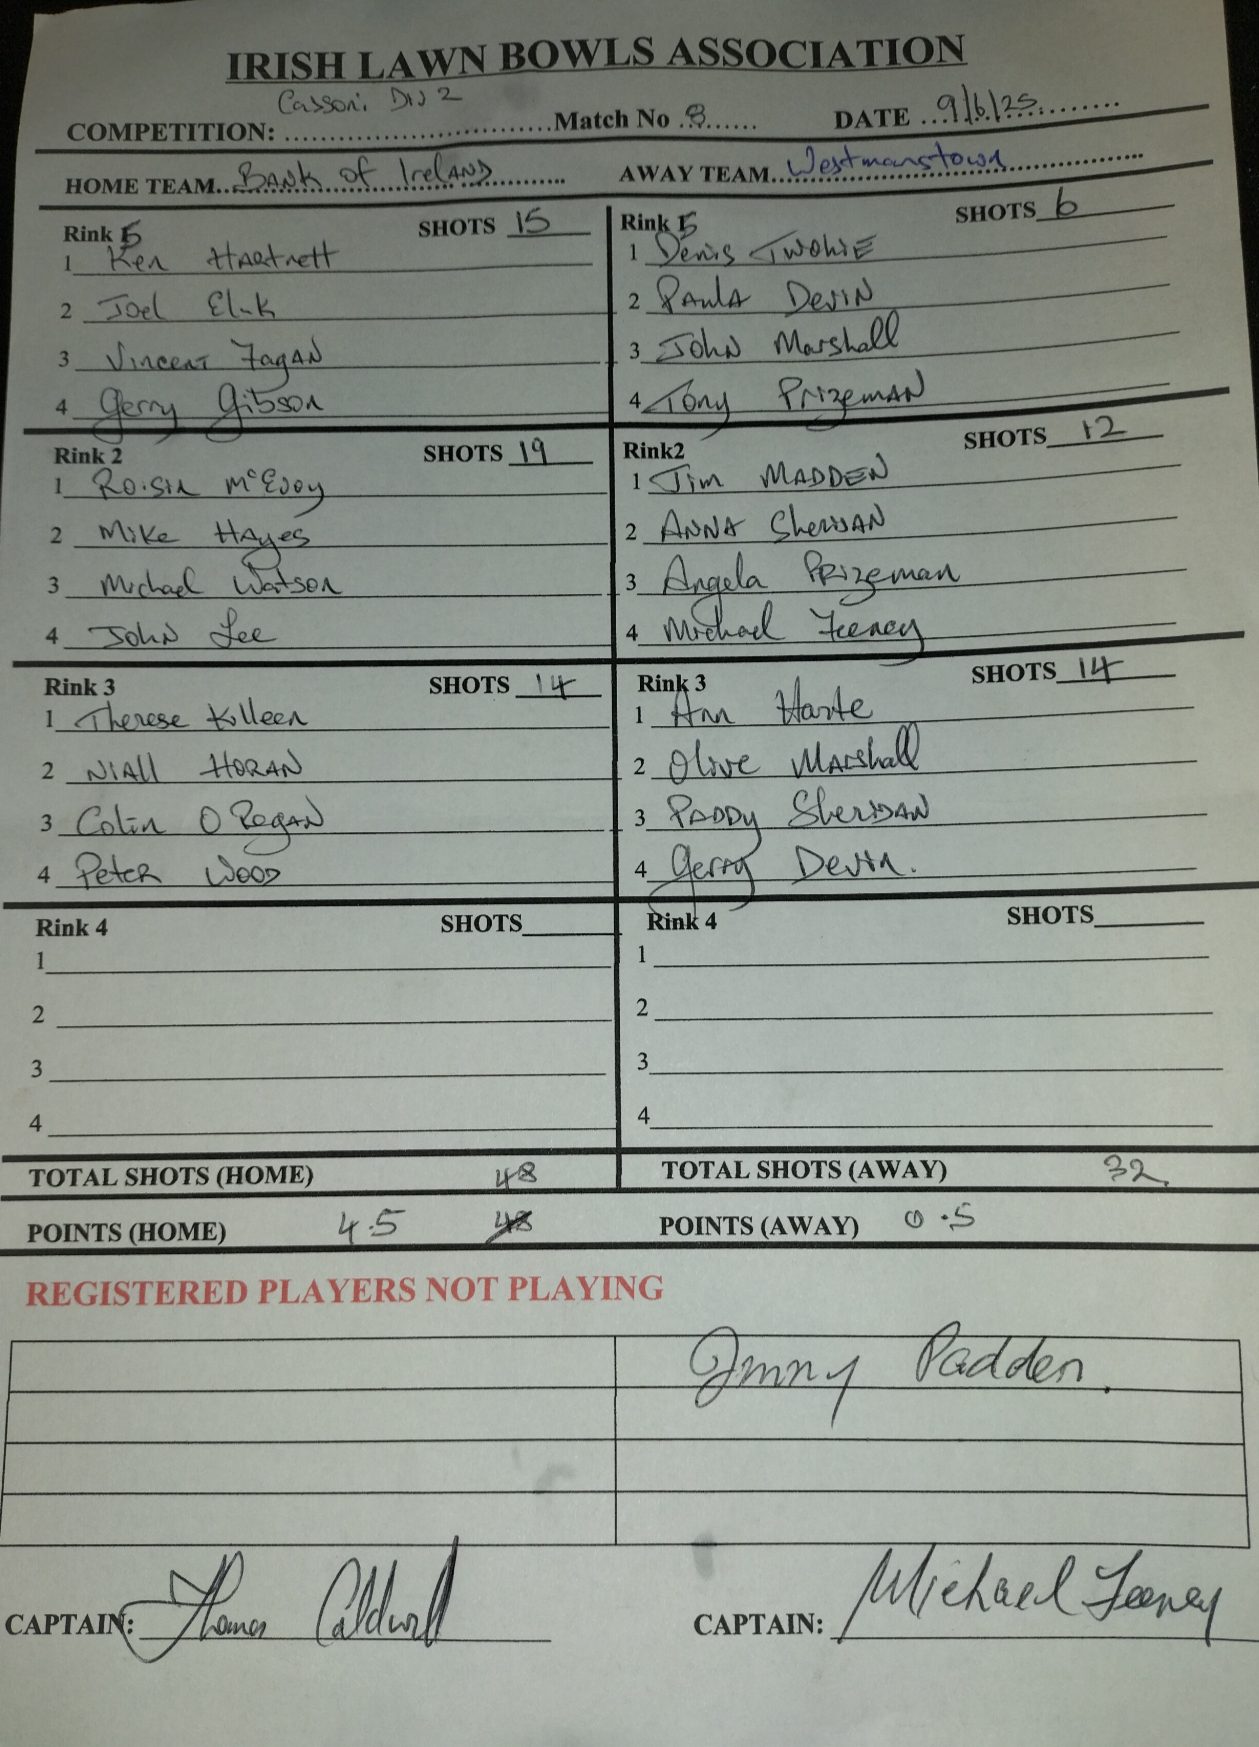 IRISH LAWN BOWLS ASSOCIATION
COMPETITION: Cassoni Div 2 Match No 8 DATE 9/6/25
HOME TEAM Bank of Ireland AWAY TEAM Westmanstown
Rink 5 SHOTS 15
1 Ken Hartnett
2 Joel
3 Vincent Fagan
4 Gerry Gibson
Rink 5 SHOTS 6
1 Denis Twohie
2 Paula Devin
3 John Marshall
4 Tony Prizeman
Rink 2 SHOTS 19
1 Roisin McEvoy
2 Mike Hayes
3 Michael Watson
4 John Lee
Rink2 SHOTS 12
1 Jim MADDEN
2 ANNA Sheridan
3 Angela Prizeman
4 Michael Feeney
Rink 3 SHOTS 14
1 Therese Killeen
2 Niall Horan
3 Colin O Regan
4 Peter Wood
Rink 3 SHOTS 14
1 Ann Harte
2 Olive Marshall
3 Paddy Sheridan
4 Gerry Devin.
Rink 4 SHOTS
1
2
3
4
Rink 4 SHOTS
1
2
3
4
TOTAL SHOTS (HOME) 48 TOTAL SHOTS (AWAY) 32
POINTS (HOME) 4.5 48 POINTS (AWAY) 0.5
REGISTERED PLAYERS NOT PLAYING
Jimmy Padden.
CAPTAIN: Thomas Caldwell CAPTAIN: Michael Feeney